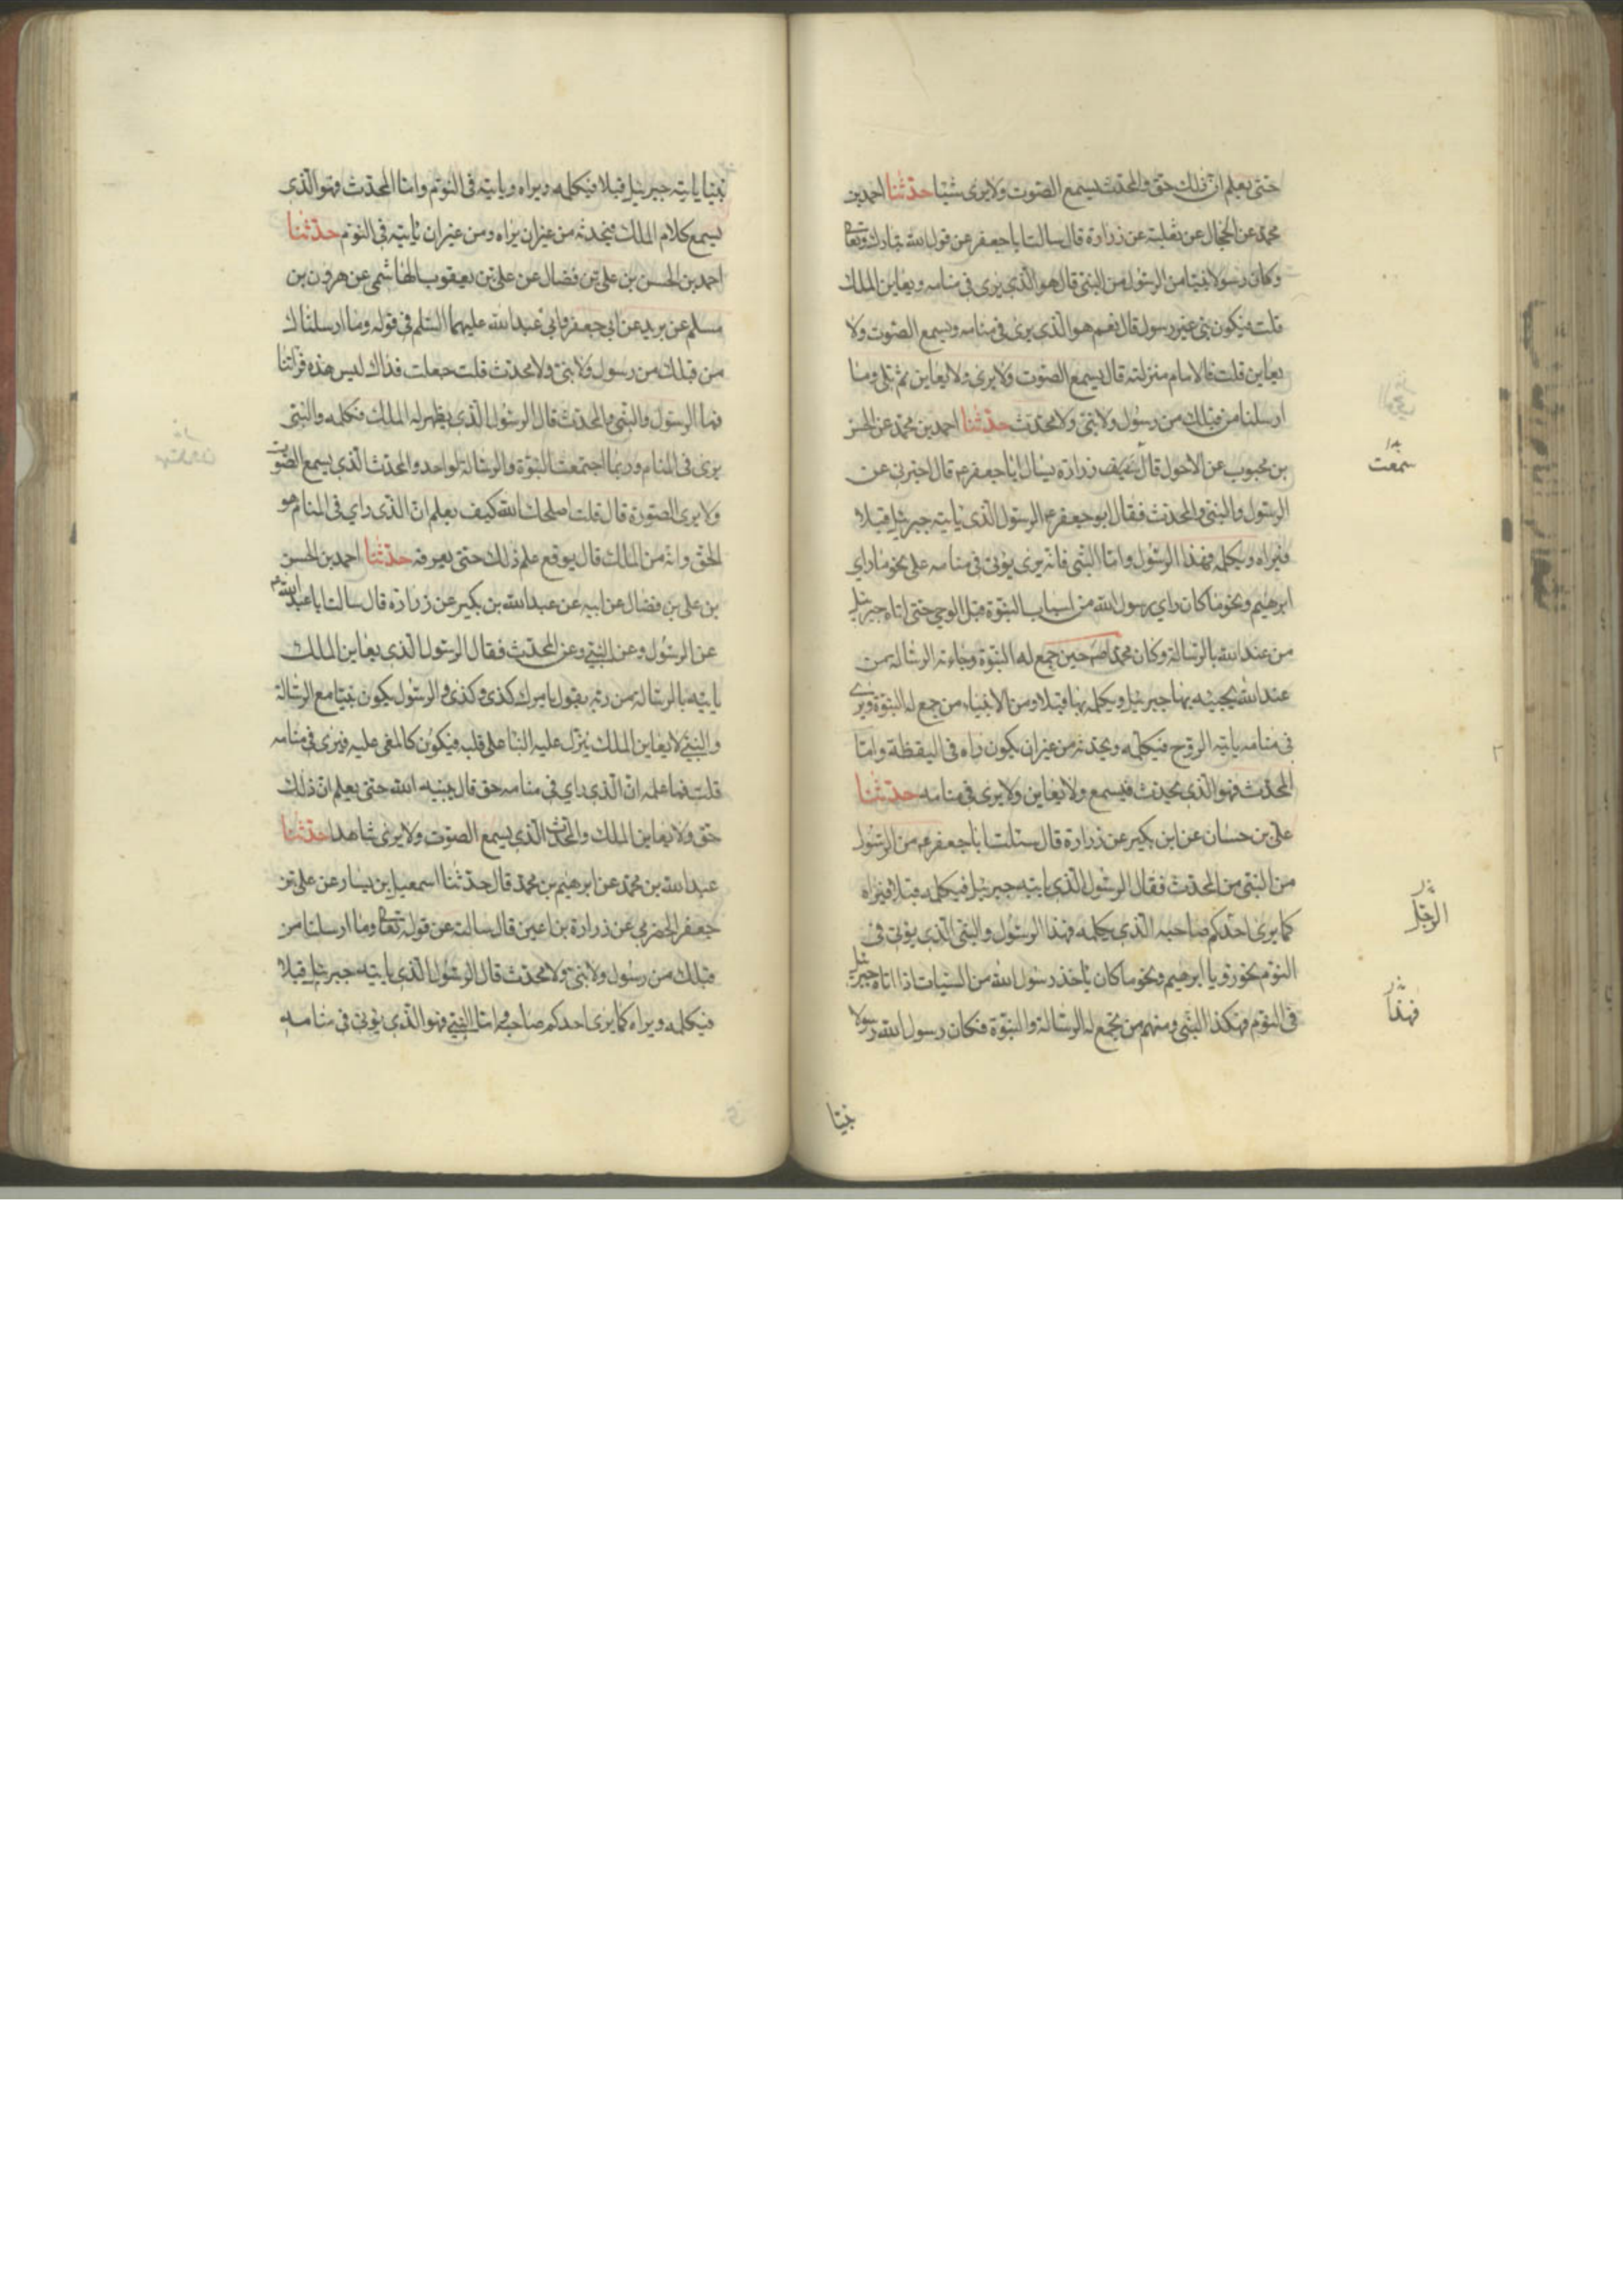 حتى يعلم ان ذلك حق والمحدث يسمع الصوت ولا يرى شيئا حدثنا احمد بن
محمد عن الحجال عن ثعلبة عن زرارة قال سالت ابا جعفر عن قول الله تبارك وتعالى
وكان رسولا نبيا من الرسول من النبي قال هو الذي يرى في منامه ويعاين الملك
قلت فيكون نبي غير رسول قال نعم هو الذي يرى في منامه ويسمع الصوت ولا
يعاين قلت فالامام منزلته قال يسمع الصوت ولا يرى ولا يعاين ثم تلى وما
ارسلنا من قبلك من رسول ولا نبي ولا محدث حدثنا احمد بن محمد عن الحسن
بن محبوب عن الاحول قال زرارة يسال ابا جعفر ع قال اخبرني عن
سمعت
الرسول والنبي والمحدث فقال ابو جعفر ع الرسول الذي ياتيه جبرئيل قبلا
فيراه ويكلمه فهذا الرسول واما النبي فانه يرى يؤتى في منامه على نحو ما راي
ابرهيم ونحو ما كان راي رسول الله من اسباب النبوة قبل الوحي حتى اتاه جبرئيل
من عند الله بالرسالة وكان محمد ص حين جمع له النبوة وجاءته الرسالة من
عند الله يجيئه بها جبرئيل ويكلمه بها قبلا ومن الانبياء من جمع له النبوة ويرى
في منامه ياتيه الروح فيكلمه ويحدثه من غير ان يكون راه في اليقظة واما
المحدث فهو الذي يحدث فيسمع ولا يعاين ولا يرى في منامه حدثنا
علي بن حسان عن ابن بكير عن زرارة قال سئلت ابا جعفر ع من الرسول
من النبي من المحدث فقال الرسول الذي ياتيه جبرئيل فيكلمه قبلا فيراه
كما يرى احدكم صاحبه الذي يكلمه فهذا الرسول والنبي الذي يؤتى في
الرجل
النوم نحو رؤيا ابرهيم ونحو ما كان ياخذ رسول الله من السبات اذا اتاه جبرئيل
في النوم فهكذا النبي ومنهم من يجمع له الرسالة والنبوة فكان رسول الله رسولا
فهذا
نبيا
نبيا ياتيه جبرئيل قبلا فيكلمه ويراه وياتيه في النوم واما المحدث فهو الذي
يسمع كلام الملك فيحدثه من غير ان يراه ومن غير ان ياتيه في النوم حدثنا
احمد بن الحسن بن علي بن فضال عن علي بن يعقوب الهاشمي عن هرون بن
مسلم عن بريد عن ابي جعفر وابي عبد الله عليهما السلم في قوله وما ارسلناك
من قبلك من رسول ولا نبي ولا محدث قلت جعلت فداك ليس هذه قرائتنا
فما الرسول والنبي والمحدث قال الرسول الذي يظهر له الملك فيكلمه والنبي
يرى في المنام وربما اجتمعت النبوة والرسالة لواحد والمحدث الذي يسمع الصوت
ولا يرى الصورة قال قلت اصلحك الله كيف يعلم ان الذي راي في المنام هو
الحق وانه من الملك قال يوقع علم ذلك حتى يعرفه حدثنا احمد بن الحسن
بن علي بن فضال عن ابيه عن عبد الله بن بكير عن زرارة قال سالت ابا عبد الله ع
عن الرسول وعن النبي وعن المحدث فقال الرسول الذي يعاين الملك
ياتيه بالرسالة من ربه يقول يامرك كذى وكذى والرسول يكون نبيا مع الرسالة
والنبي لا يعاين الملك ينزل عليه النبا على قلبه فيكون كالمغمى عليه فيرى في منامه
قلت فما علمه ان الذي راي في منامه حق قال يبينه الله حتى يعلم ان ذلك
حق ولا يعاين الملك والمحدث الذي يسمع الصوت ولا يرى شاهدا حدثنا
عبد الله بن محمد عن ابرهيم بن محمد قال حدثنا اسمعيل بن يسار عن علي بن
جعفر الحضرمي عن زرارة بن اعين قال سالته عن قوله تعالى وما ارسلنا من
قبلك من رسول ولا نبي ولا محدث قال الرسول الذي ياتيه جبرئيل قبلا
فيكلمه ويراه كما يرى احدكم صاحبه واما النبي فهو الذي يؤتى في منامه